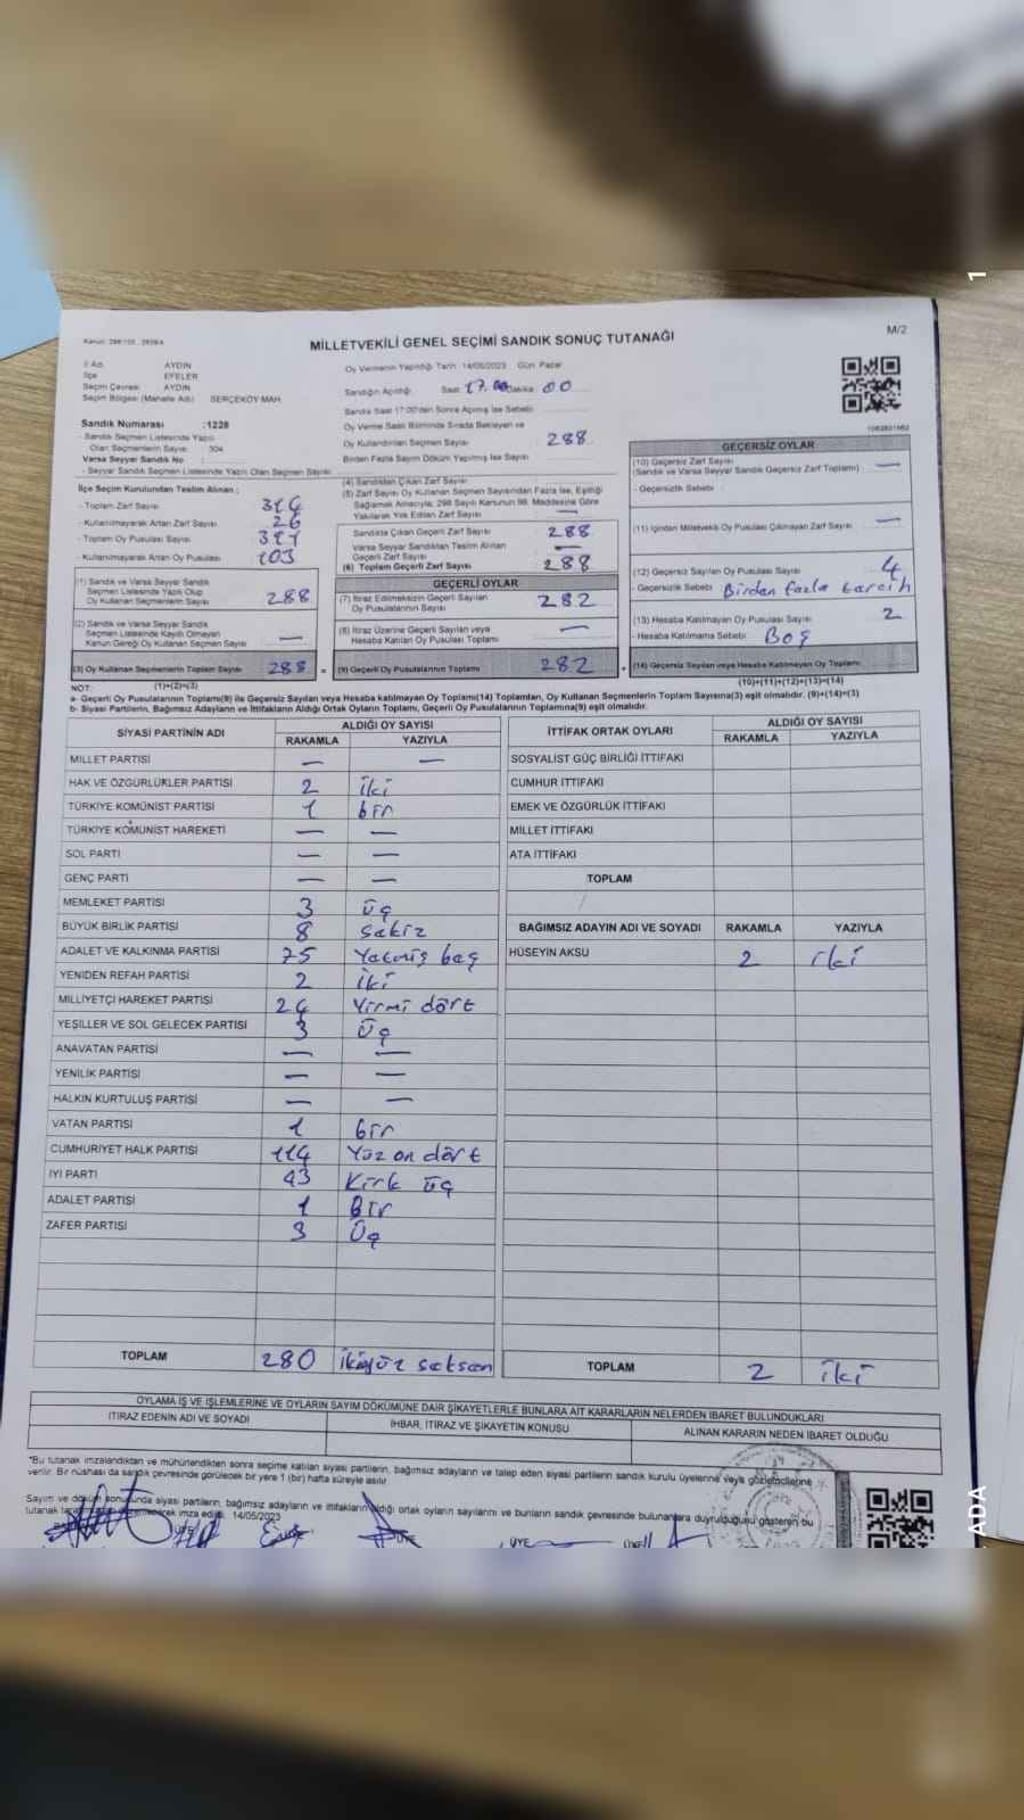 MİLLETVEKİLİ GENEL SEÇİMİ SANDIK SONUÇ TUTANAĞI
M/2
İl Adı AYDIN
İlçe EFELER
Seçim Çevresi AYDIN
Seçim Bölgesi (Mahalle Adı) SERÇEKÖY MAH.
Sandık Numarası :1228
Sandık Seçmen Listesinde Yazılı
Olan Seçmenlerin Sayısı 304
Varsa Seyyar Sandık No :
- Seyyar Sandık Seçmen Listesinde Yazılı Olan Seçmen Sayısı
Oy Vermenin Yapıldığı Tarih 14/05/2023 Gün Pazar
Sandığın Açıldığı Saat 17.00 Dakika 00
Sandık Saat 17:00'den Sonra Açılmış İse Sebebi
Oy Verme Saati Bitiminde Sırada Bekleyen ve
Oy Kullandırılan Seçmen Sayısı 288
Birden Fazla Sayım Döküm Yapılmış İse Sayısı
İlçe Seçim Kurulundan Teslim Alınan :
- Toplam Zarf Sayısı
- Kullanılmayarak Artan Zarf Sayısı 26
- Toplam Oy Pusulası Sayısı
- Kullanılmayarak Artan Oy Pusulası 103
(1) Sandık ve Varsa Seyyar Sandık
Seçmen Listesinde Yazılı Olup
Oy Kullanan Seçmenlerin Sayısı 288
(2) Sandık ve Varsa Seyyar Sandık
Seçmen Listesinde Kayıtlı Olmayan
Kanun Gereği Oy Kullanan Seçmen Sayısı —
(3) Oy Kullanan Seçmenlerin Toplam Sayısı 288 =
(1)+(2)=(3)
(4) Sandıktan Çıkan Zarf Sayısı
(5) Zarf Sayısı Oy Kullanan Seçmen Sayısından Fazla İse, Eşitliği
Sağlamak Amacıyla; 298 Sayılı Kanunun 98. Maddesine Göre
Yakılarak Yok Edilen Zarf Sayısı —
Sandıkta Çıkan Geçerli Zarf Sayısı 288
Varsa Seyyar Sandıktan Teslim Alınan
Geçerli Zarf Sayısı —
(6) Toplam Geçerli Zarf Sayısı 288
GEÇERLİ OYLAR
(7) İtiraz Edilmeksizin Geçerli Sayılan
Oy Pusulalarının Sayısı 282
(8) İtiraz Üzerine Geçerli Sayılan veya
Hesaba Katılan Oy Pusulası Toplamı —
(9) Geçerli Oy Pusulalarının Toplamı 282 +
GEÇERSİZ OYLAR
(10) Geçersiz Zarf Sayısı
(Sandık ve Varsa Seyyar Sandık Geçersiz Zarf Toplamı) —
- Geçersizlik Sebebi
(11) İçinden Milletvekili Oy Pusulası Çıkmayan Zarf Sayısı —
(12) Geçersiz Sayılan Oy Pusulası Sayısı 4
- Geçersizlik Sebebi Birden fazla tercih
(13) Hesaba Katılmayan Oy Pusulası Sayısı 2
- Hesaba Katılmama Sebebi Boş
(14) Geçersiz Sayılan veya Hesaba Katılmayan Oy Toplamı
(10)+(11)+(12)+(13)=(14)
NOT:
a- Geçerli Oy Pusulalarının Toplamı(9) ile Geçersiz Sayılan veya Hesaba katılmayan Oy Toplamı(14) Toplamları, Oy Kullanan Seçmenlerin Toplam Sayısına(3) eşit olmalıdır. (9)+(14)=(3)
b- Siyasi Partilerin, Bağımsız Adayların ve İttifakların Aldığı Ortak Oyların Toplamı, Geçerli Oy Pusulalarının Toplamına(9) eşit olmalıdır.
SİYASİ PARTİNİN ADI ALDIĞI OY SAYISI
RAKAMLA YAZIYLA
MİLLET PARTİSİ — —
HAK VE ÖZGÜRLÜKLER PARTİSİ 2 iki
TÜRKİYE KOMÜNİST PARTİSİ 1 bir
TÜRKİYE KOMÜNİST HAREKETİ — —
SOL PARTİ — —
GENÇ PARTİ — —
MEMLEKET PARTİSİ 3 üç
BÜYÜK BİRLİK PARTİSİ 8 sekiz
ADALET VE KALKINMA PARTİSİ 75 Yetmiş beş
YENİDEN REFAH PARTİSİ 2 iki
MİLLİYETÇİ HAREKET PARTİSİ 24 Yirmi dört
YEŞİLLER VE SOL GELECEK PARTİSİ 3 Üç
ANAVATAN PARTİSİ — —
YENİLİK PARTİSİ — —
HALKIN KURTULUŞ PARTİSİ — —
VATAN PARTİSİ 1 bir
CUMHURİYET HALK PARTİSİ 114 Yüz on dört
İYİ PARTİ 43 Kırk üç
ADALET PARTİSİ 1 Bir
ZAFER PARTİSİ 3 Üç
TOPLAM 280 ikiyüz seksen
İTTİFAK ORTAK OYLARI ALDIĞI OY SAYISI
RAKAMLA YAZIYLA
SOSYALİST GÜÇ BİRLİĞİ İTTİFAKI
CUMHUR İTTİFAKI
EMEK VE ÖZGÜRLÜK İTTİFAKI
MİLLET İTTİFAKI
ATA İTTİFAKI
TOPLAM
BAĞIMSIZ ADAYIN ADI VE SOYADI RAKAMLA YAZIYLA
HÜSEYİN AKSU 2 iki
TOPLAM 2 iki
OYLAMA İŞ VE İŞLEMLERİNE VE OYLARIN SAYIM DÖKÜMÜNE DAİR ŞİKAYETLERLE BUNLARA AİT KARARLARIN NELERDEN İBARET BULUNDUKLARI
İTİRAZ EDENİN ADI VE SOYADI İHBAR, İTİRAZ VE ŞİKAYETİN KONUSU ALINAN KARARIN NEDEN İBARET OLDUĞU
*Bu tutanak imzalandıktan ve mühürlendikten sonra seçime katılan siyasi partilerin, bağımsız adayların ve talep eden siyasi partilerin sandık kurulu üyelerine veya gözlemcilerine
verilir. Bir nüshası da sandık çevresinde görülecek bir yere 1 (bir) hafta süreyle asılır
Sayım ve döküm sonucunda siyasi partilerin, bağımsız adayların ve ittifakların aldığı ortak oyların sayılarını ve bunların sandık çevresinde bulunanlara duyrulduğunu gösteren bu
tutanak imza edildi. 14/05/2023
ÜYE
ADA
1